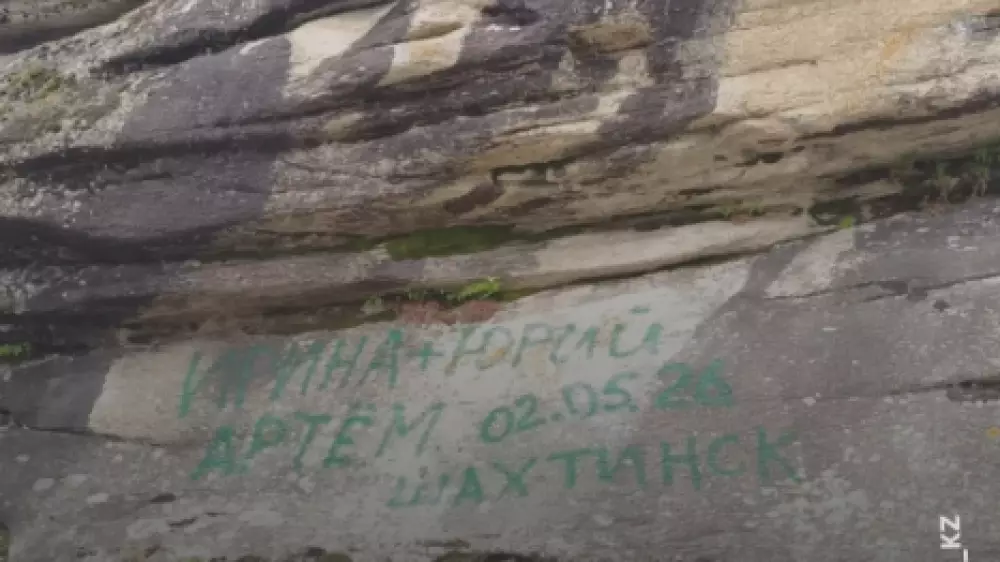 ИРИНА+ЮРИЙ
АРТЁМ. 02.05.26
ШАХТИНСК
_KZ